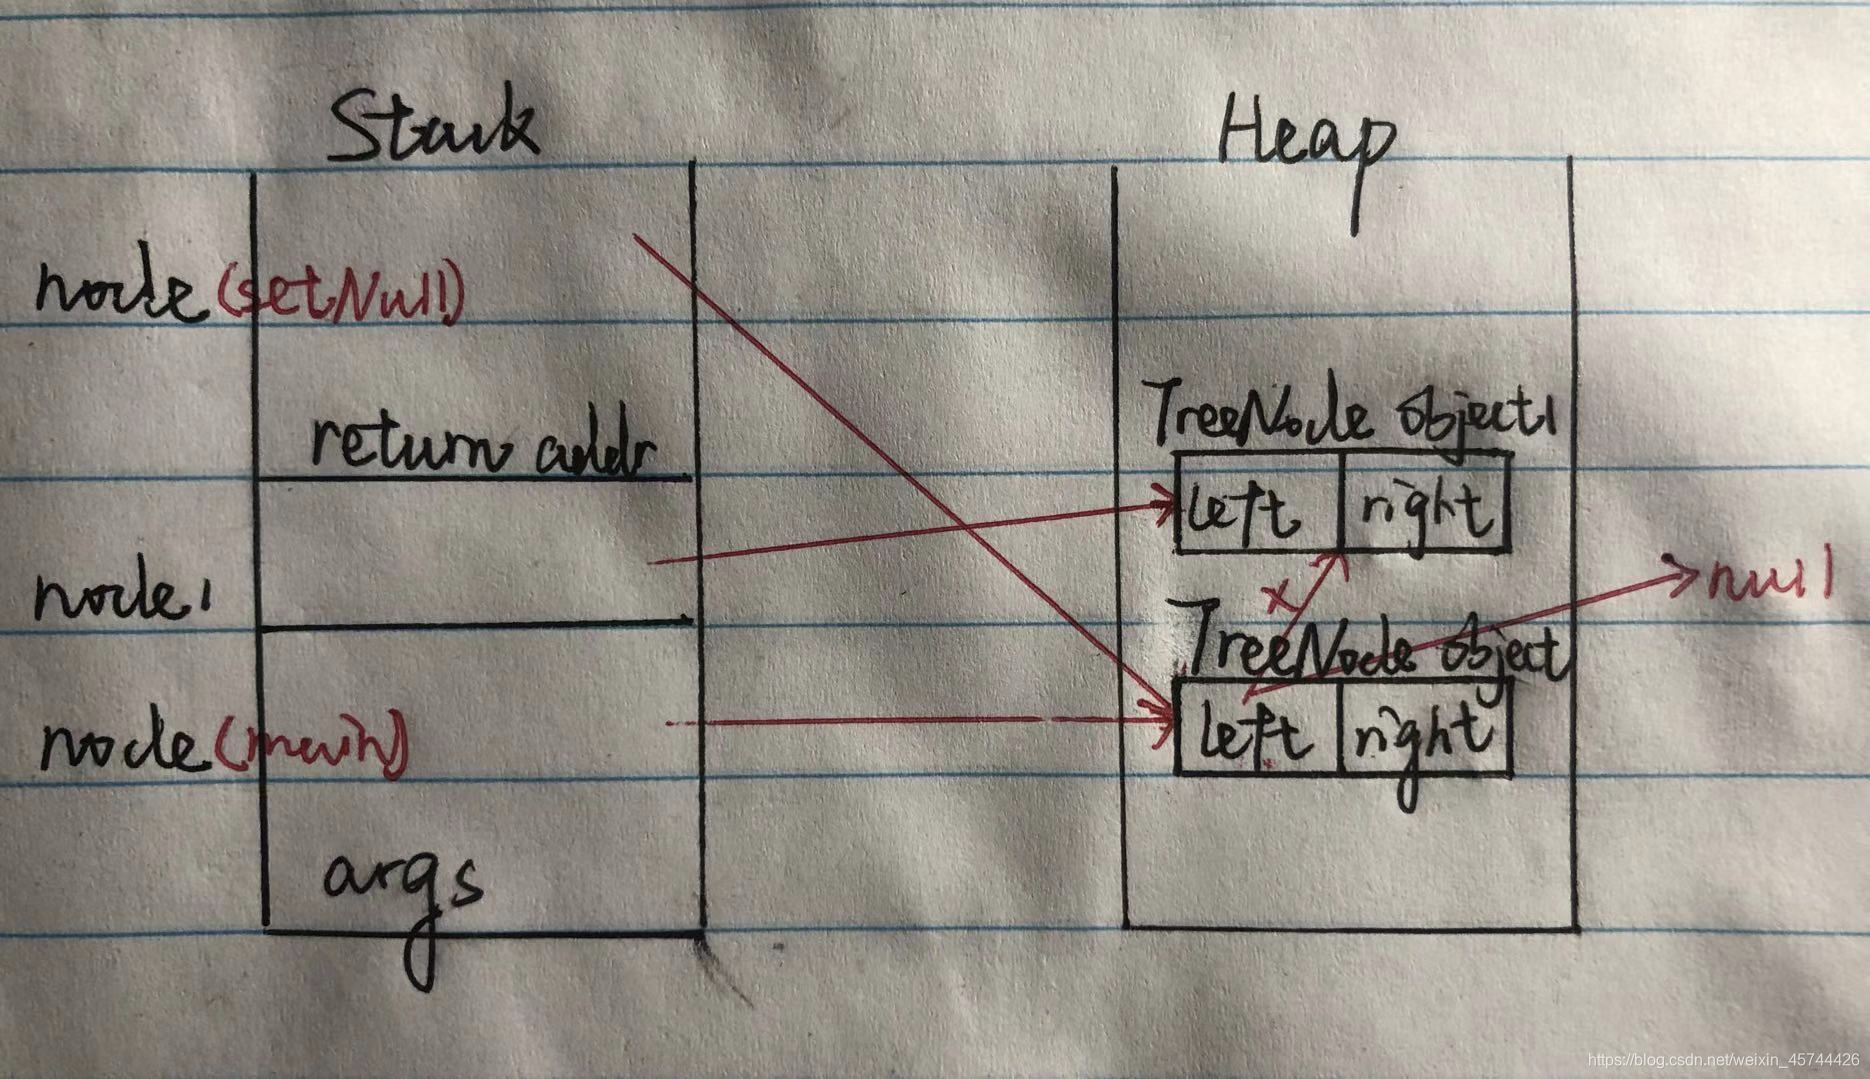 Stack
Heap
node (setNull)
return addr
TreeNode object1
left right
node1
null
x
TreeNode object
left right
node (main)
args
https://blog.csdn.net/weixin_45744426